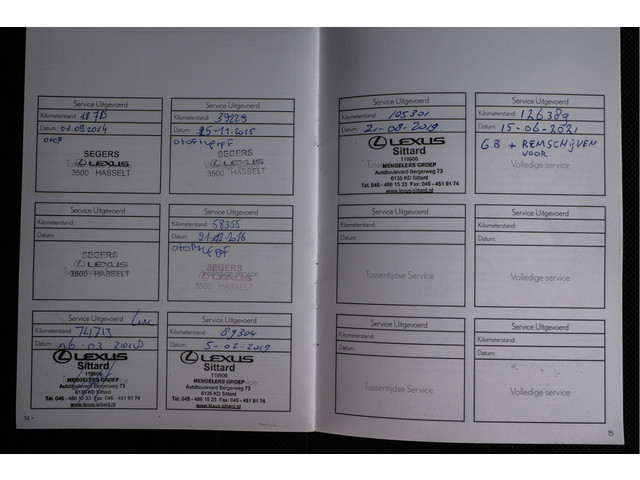 Service Uitgevoerd
Kilometerstand:
Datum: 01.09.2014
SEGERS
LEXUS
3500 HASSELT
Service Uitgevoerd
Kilometerstand: 39229
Datum: 25-11-2015
SEGERS
LEXUS
3500 HASSELT
Service Uitgevoerd
Kilometerstand:
Datum:
SEGERS
LEXUS
3500 HASSELT
Service Uitgevoerd
Kilometerstand: 58355
Datum: 21-12-2016
SEGERS
LEXUS
3500 HASSELT
Service Uitgevoerd
Kilometerstand: 74713
Datum:
LEXUS
Sittard
119906
MENGELERS GROEP
Autoboulevard Bergerweg 73
6135 KD Sittard
Tel. 046 - 486 15 33 Fax: 046 - 451 91 74
www.lexus-sittard.nl
Service Uitgevoerd
Kilometerstand: 89304
Datum: 5-02-2019
LEXUS
Sittard
119906
MENGELERS GROEP
Autoboulevard Bergerweg 73
6135 KD Sittard
Tel. 046 - 486 15 33 Fax: 046 - 451 91 74
www.lexus-sittard.nl
14
Service Uitgevoerd
Kilometerstand: 105301
Datum: 21-08-2019
LEXUS
Sittard
119906
MENGELERS GROEP
Autoboulevard Bergerweg 73
6135 KD Sittard
Tel. 046 - 486 15 33 Fax: 046 - 451 91 74
www.lexus-sittard.nl
Service Uitgevoerd
Kilometerstand: 126389
Datum: 15-06-2021
GB + REMSCHIJVEN
VOOR
Volledige service
Service Uitgevoerd
Kilometerstand:
Datum:
Tussentijdse Service
Service Uitgevoerd
Kilometerstand:
Datum:
Volledige service
Service Uitgevoerd
Kilometerstand:
Datum:
Tussentijdse Service
Service Uitgevoerd
Kilometerstand:
Datum:
Volledige service
15